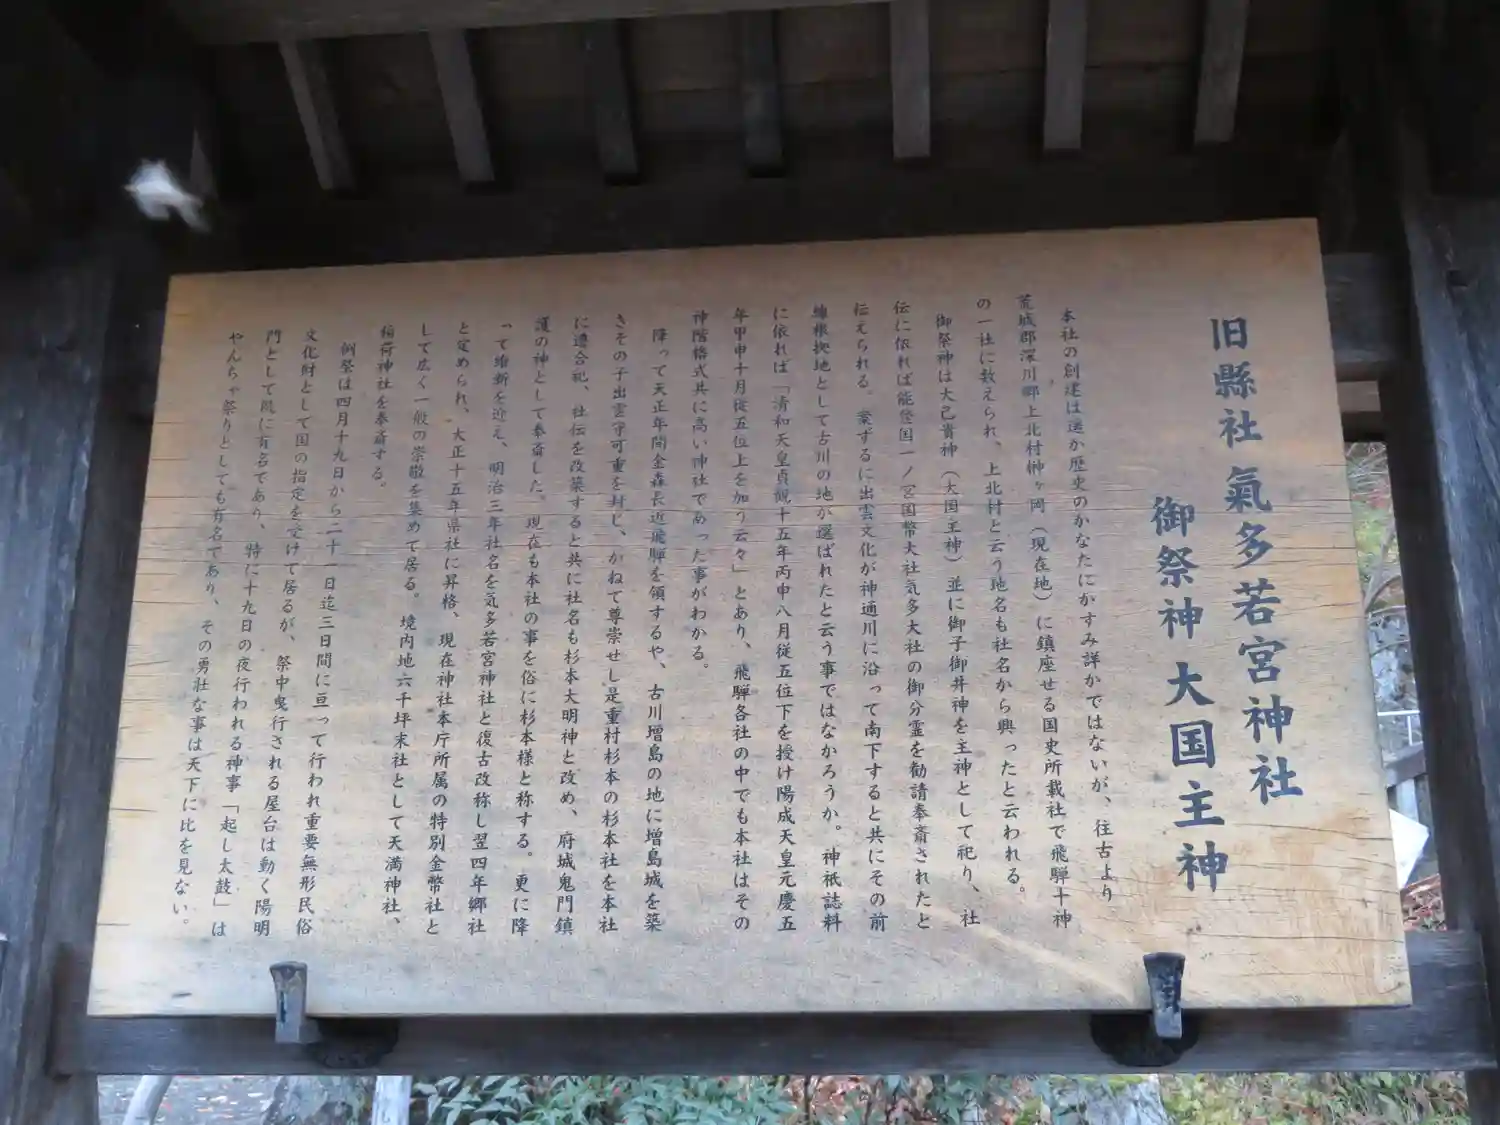 旧縣社 氣多若宮神社
御祭神 大国主神
本社の創建は遥か歴史のかなたにかすみ詳かではないが、往古より
荒城郡深川郷上北村榊ヶ岡（現在地）に鎮座せる国史所載社で飛騨十神
の一社に数えられ、上北村と云う地名も社名から興ったと云われる。
御祭神は大己貴神（大国主神）並に御子御井神を主神として祀り、社
伝に依れば能登国一ノ宮国幣大社気多大社の御分霊を勧請奉斎されたと
伝えられる。案ずるに出雲文化が神通川に沿って南下すると共にその前
線根拠地として古川の地が選ばれたと云う事ではなかろうか。神祇誌料
に依れば「清和天皇貞観十五年丙申八月従五位下を授け陽成天皇元慶五
年甲申十月従五位上を加う云々」とあり、飛騨各社の中でも本社はその
神階格式共に高い神社であった事がわかる。
降って天正年間金森長近飛騨を領するや、古川増島の地に増島城を築
きその子出雲守可重を封じ、かねて尊崇せし是重村杉本の杉本社を本社
に遷合祀、社伝を改築すると共に社名も杉本大明神と改め、府城鬼門鎮
護の神として奉斎した。現在も本社の事を俗に杉本様と称する。更に降
って維新を迎え、明治三年社名を気多若宮神社と復古改称し翌四年郷社
と定められ、大正十五年県社に昇格、現在神社本庁所属の特別金幣社と
して広く一般の崇敬を集めて居る。境内地六千坪末社として天満神社、
稲荷神社を奉斎する。
例祭は四月十九日から二十一日迄三日間に亘って行われ重要無形民俗
文化財として国の指定を受けて居るが、祭中曳行される屋台は動く陽明
門として既に有名であり、特に十九日の夜行われる神事「起し太鼓」は
やんちゃ祭りとしても有名であり、その勇壮な事は天下に比を見ない。